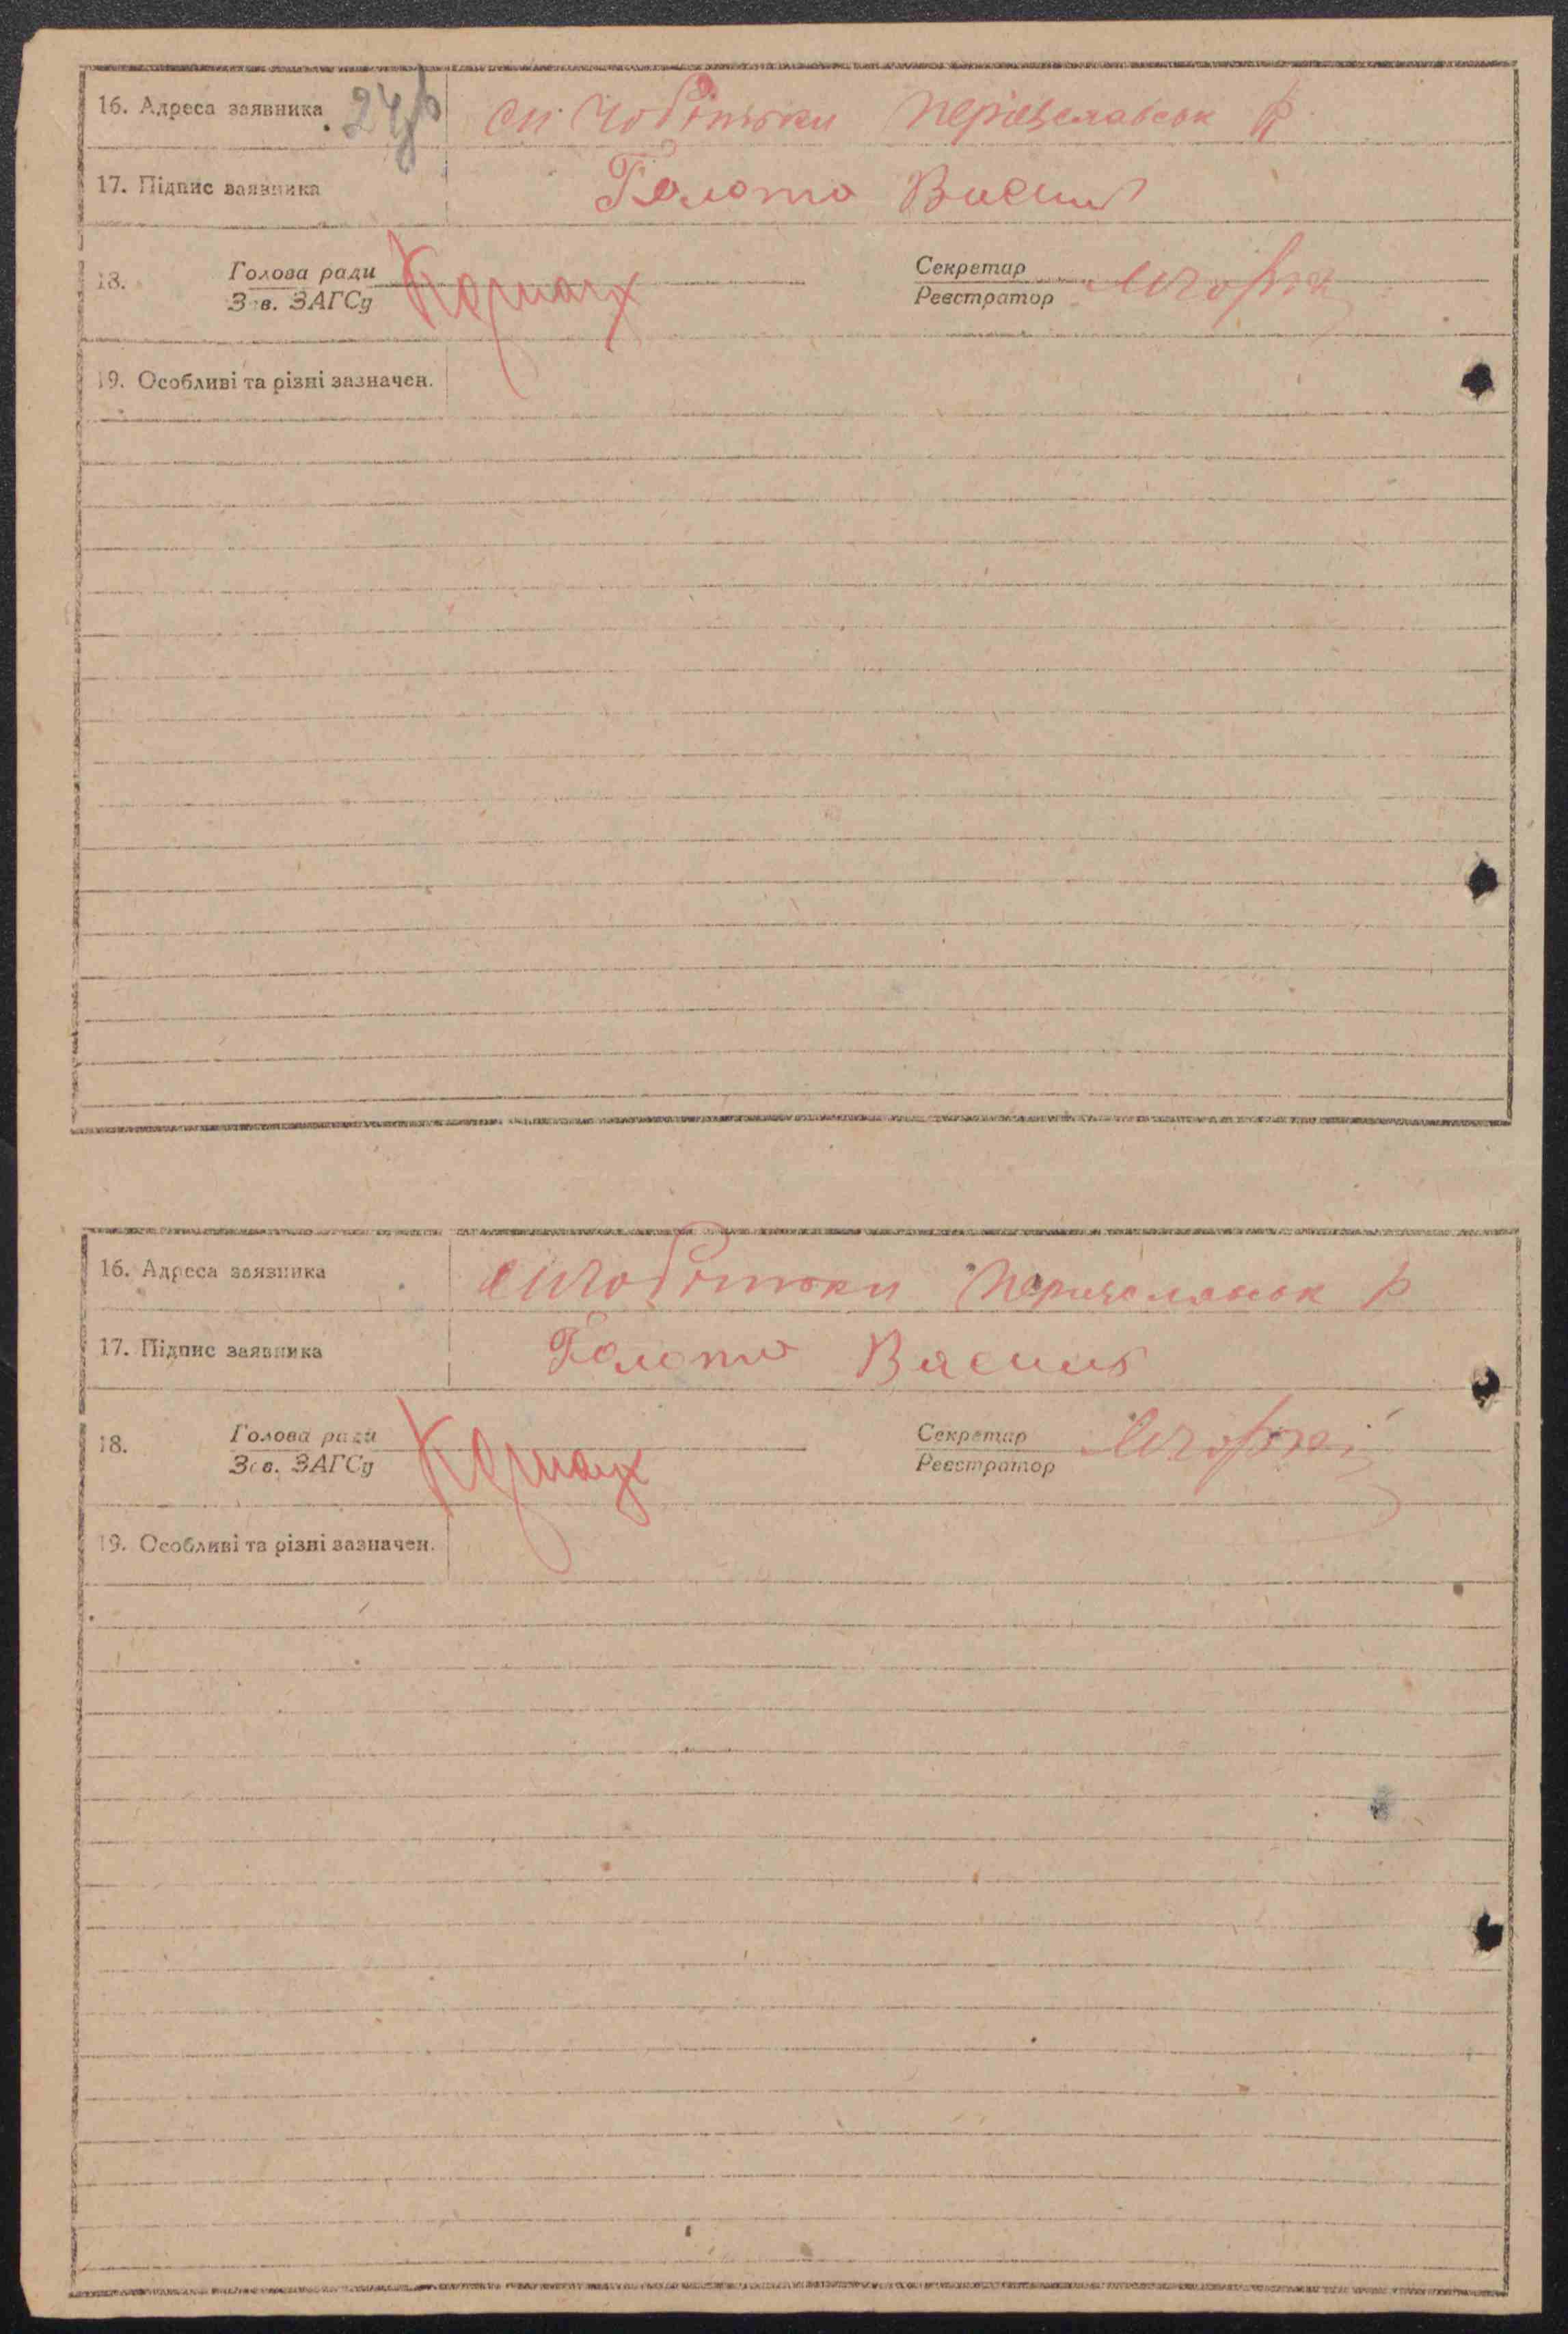 16. Адреса заявника 24 р с Чобітьки Переяславськ р
17. Підпис заявника Голота Васил
18. Голова ради Секретар
Зав. ЗАГСу Реєстратор
19. Особливі та різні зазначен.
16. Адреса заявника с Чобітьки Переяславськ р
17. Підпис заявника Голота Василь
18. Голова ради Секретар
Зав. ЗАГСу Реєстратор
19. Особливі та різні зазначен.